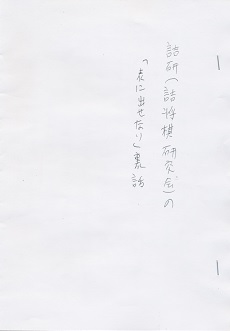 詰研(詰将棋研究会)の
「表に出せない」裏話